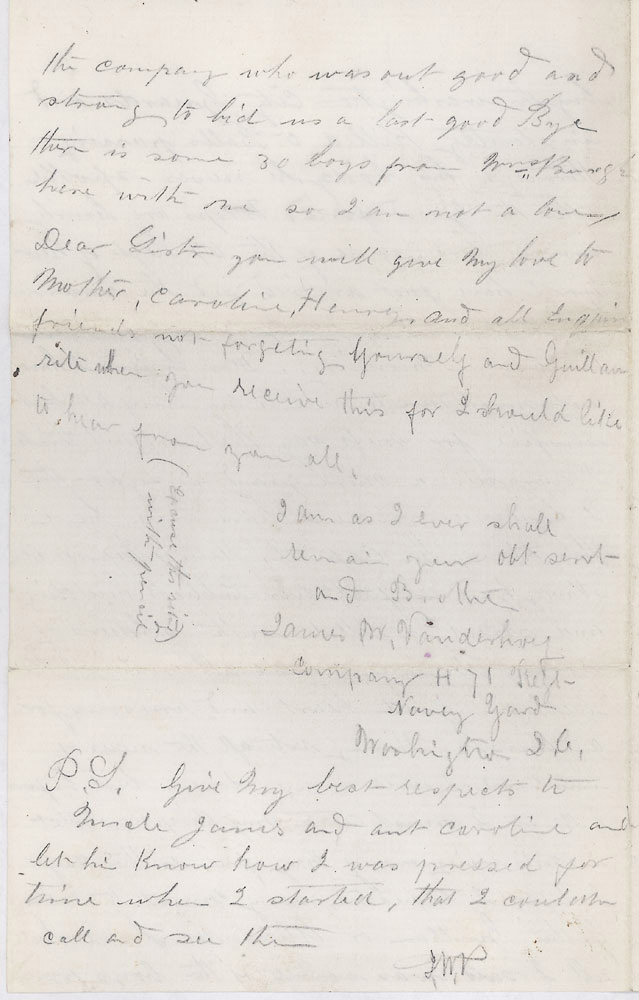 the company who was out good and
strong to bid us a last good Bye
ther is some 30 boys from
here with me so I am not a lone
Dear Sistr you will give My love to
Mother, Caroline, Henry, and all
friends not forgeting Yourself and
rite when you receive this for I should like
to hear from you all.
(Excuse this
with pencil)
I am as I ever shall
remain your obt servt
and Brother
James W. Vanderhoef
Company H 71 Regt
Navey Yard
Washington D C,
P.S. Give My best respects to
Uncle James and ant caroline and
let him Know how I was pressed for
time when I started, that I
call and see them
J.W.V